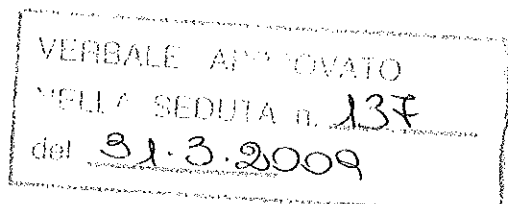 VERBALE APPROVATO
NELLA SEDUTA n. 137
del 31.3.2009